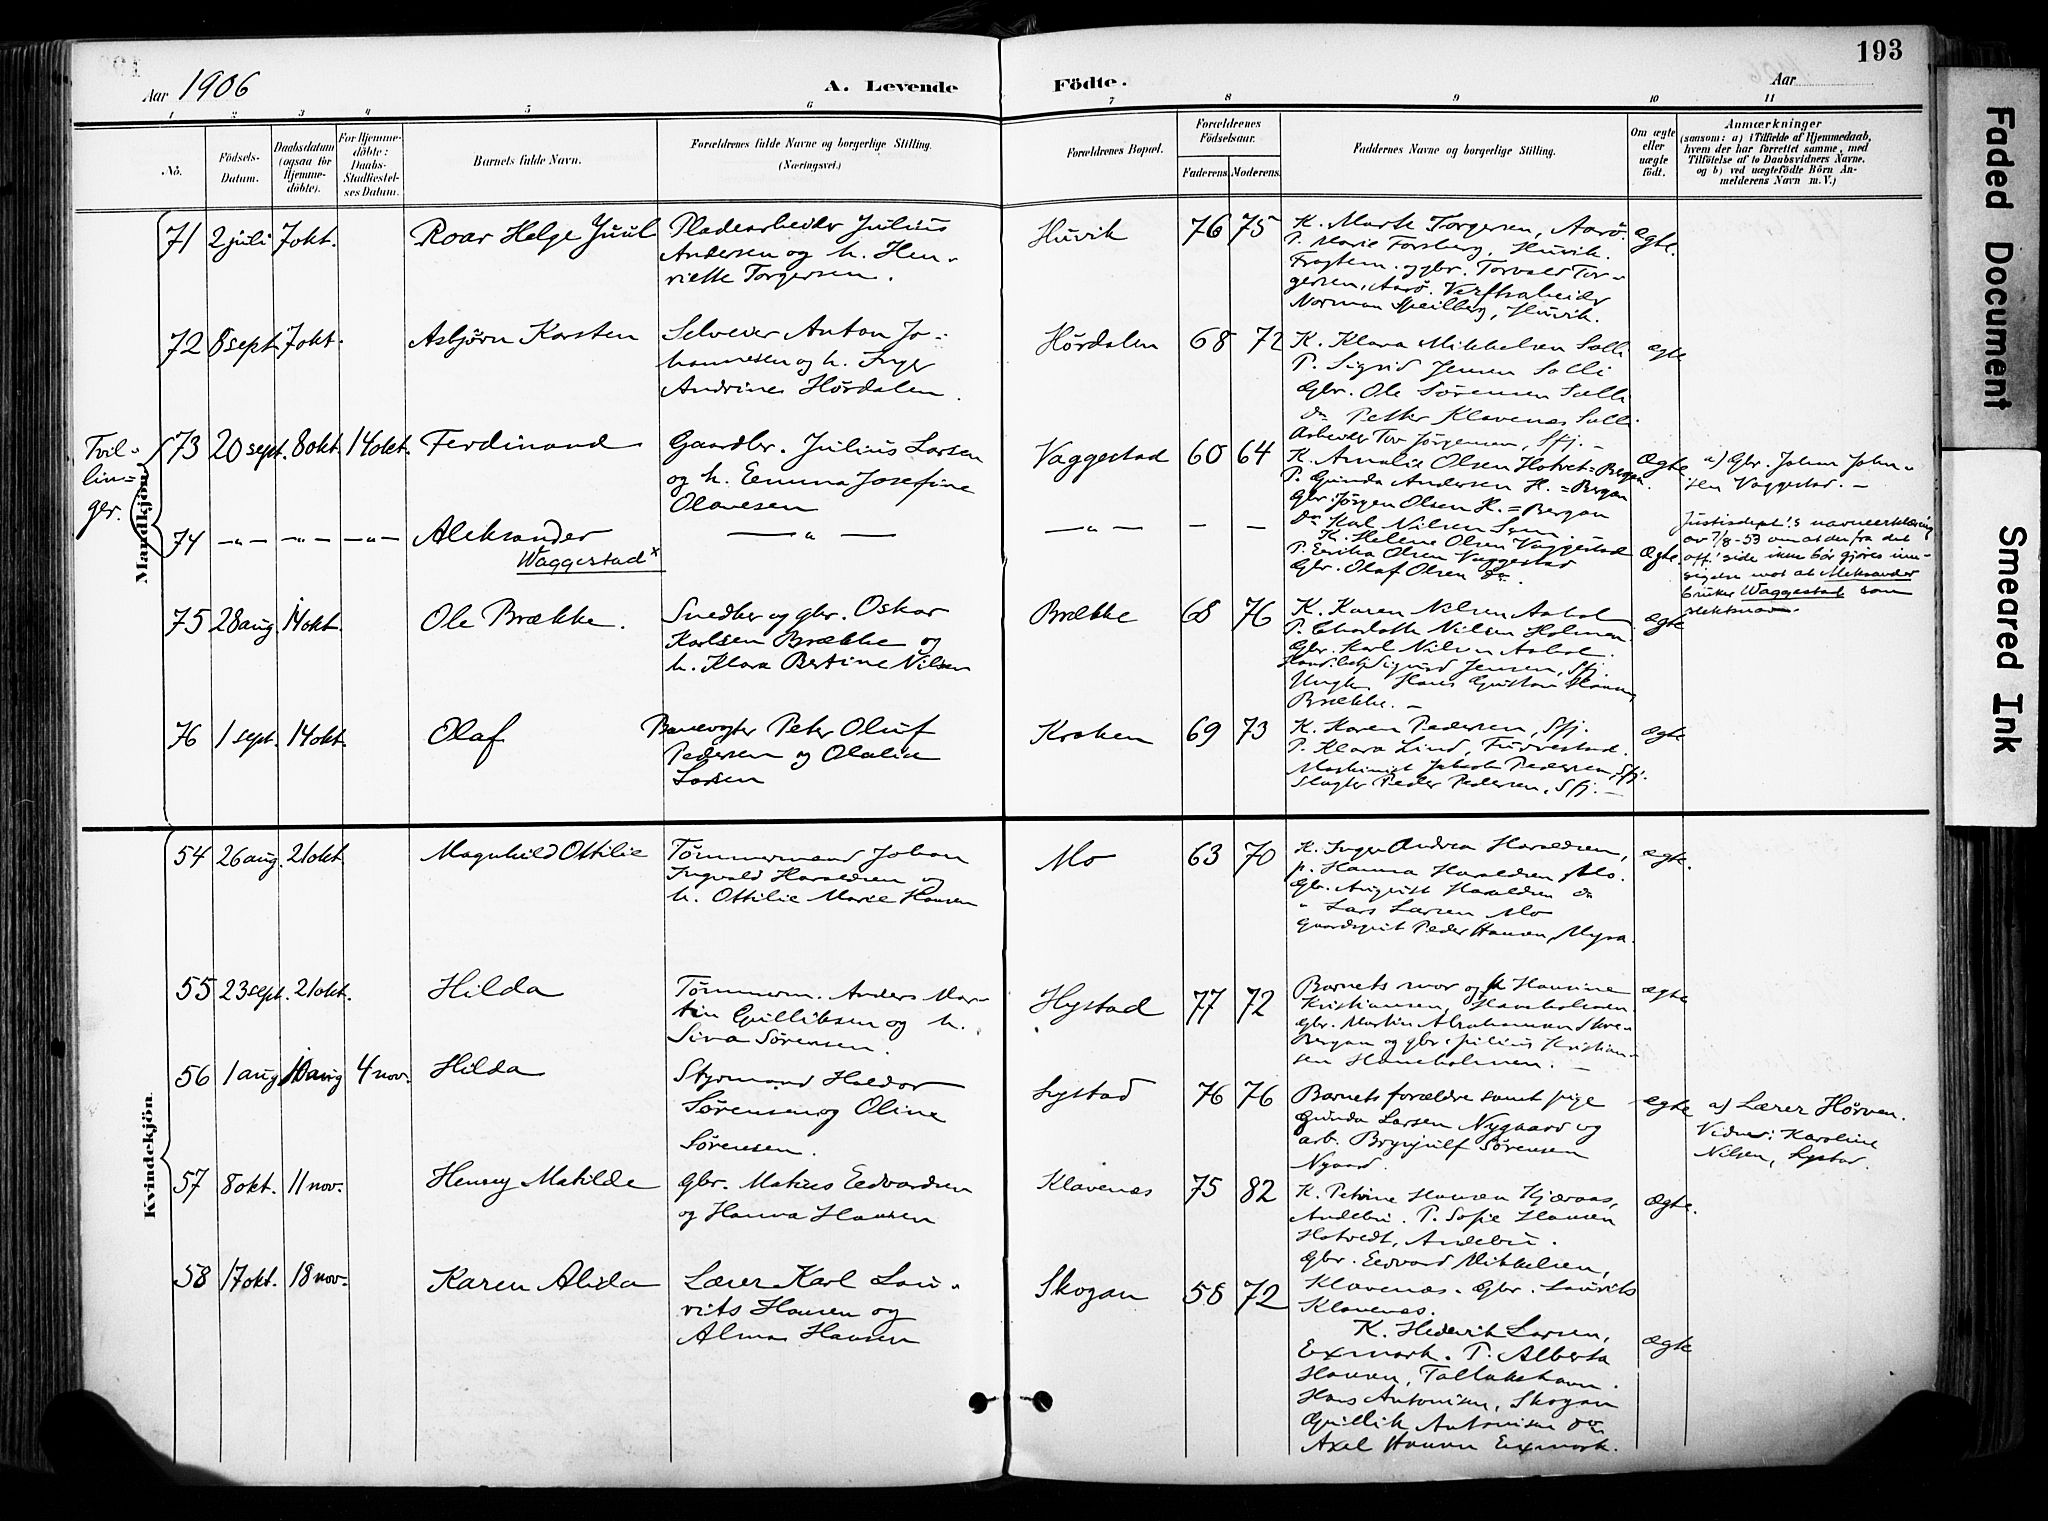 193
Aar 1906
A. Levende
Födte.
Aar
1 2 3 4 5 6 7 8 9 10 11
No.
Födsels-Datum.
Daabsdatum (ogsaa for Hjemmedöbte).
For Hjemmedöbte: Daabs-Stadfæstelses Datum.
Barnets fulde Navn.
Forældrenes fulde Navne og borgerlige Stilling. (Næringsvei.)
Forældrenes Bopæl.
Forældrenes Födselsaar.
Faderens. Moderens.
Faddernes Navne og borgerlige Stilling.
Om ægte eller uægte födt.
Anmærkninger
(saasom: a) i Tilfælde af Hjemmedaab, hvem der har forrettet samme, med Tilföielse af to Daabsvidners Navne. og b) ved uægtefödte Börn Anmelderens Navn m. V.)
Mandkjön.
71 2 juli 7 okt. Roar Helge Juul
Pladearbeider Julius
Andersen og h. Hen-
riette Torgersen.
Husvik 76 75
K. Marte Torgersen, Aarö.
P. Marie Forsberg, Husvik.
Fragtem. og gbr. Torvald Tor-
gersen, Aarö. Verftsarbeider
Norman Speilberg, Husvik.
ægte.
72 8 sept. 7 okt. Asbjörn Karsten
Selveier Anton Jo-
hannesen og h. Inger
Andrine Hördalen.
Hördalen 68 72
K. Klara Mikkelsen Solli
P. Sigrid Jensen Solli
Gbr. Ole Sörensen Solli
do Petter Klavenæs Solli
Arbeider Tor Jörgensen, Sfj. —
ægte
Tvil-
lin-
ger.
73 20 sept. 8 okt. 14 okt. Ferdinand
Gaardbr. Julius Larsen
og h. Emma Josefine
Olavesen
Vaggestad 60 64
K. Amalie Olsen Hotvet=Bergan
P. Gunda Andersen H.=Bergan
Gbr. Jörgen Olsen H.=Bergan
do Karl Nilsen
Ægte
a) Gbr. Johan John-
sen Vaggestad. —
74 —"— —"— —"— Aleksander
Waggestad x
— " —
— " — — —
K. Helene Olsen Vaggestad
P. Erika Olsen Vaggestad
Gbr. Olaf Olsen do.
Ægte
Justisdept.'s navneerklæring
av 7/8-53 om at der fra det
off.' side ikke bör gjöres inn-
sigelse mot at Aleksander
bruker Waggestad som
slektsnavn.
75 28 aug. 14 okt. Ole Brække.
Snedker og gbr. Oskar
Karlsen Brække og
h. Klara Bertine Nilsen
Brække 68 76
K. Karen Nilsen
P. Charlotte Nilsen Holmen
Gbr. Karl Nilsen
Handelsbetj. Sigurd Jensen, Sfj.
Ungk. Hans Gustav
Brække. —
ægte
76 1 sept. 14 okt. Olaf
Banevogter Peter Oluf
Pedersen og Olalia
Larsen
Kraken 69 73
K. Karen Pedersen, Sfj.
P. Klara Lind, Furrestad.
Maskinist Jakob Pedersen, Sfj.
Slagter Peder Pedersen, Sfj. —
ægte
Kvindekjön.
54 26 aug. 21 okt. Magnhild Ottilie
Tömmermand Johan
Ingvald Haraldsen og
h. Ottilie Marie Hansen
Mo 63 70
K. Inger Andrea Haraldsen,
p. Hanna Haraldsen, Mo.
Gbr. August Haraldsen do
" Lars Larsen Mo
Gaardsgut Peder Hansen, Myra.
ægte.
55 23 sept. 21 okt. Hilda
Tömmerm. Anders Mar-
tin Gulliksen og h.
Sina Sörensen.
Hystad 77 72
Barnets mor og h Hansine
Kristiansen, Haneholmen
Gbr. Martin Abrahamsen
Bergan og gbr. Julius Kristian-
sen Haneholmen. —
ægte
56 1 aug 10 aug 4 nov. Hilda
Styrmand Haldor
Sörensen og Oline
Sörensen.
Lystad 76 76
Barnets forældre samt pige
Gunda Larsen Nygaard og
arb. Brynjulf Sörensen
Nygaard.
ægte
a) Lærer Hörven.
Vidner: Karoline
Nilsen, Lystad.
57 8 okt. 11 nov. Henny Matilde
Gbr. Matius Edvardsen
og Hanna Hansen
Klavenæs 75 82
K. Petrine Hansen Kjæraas,
Andebu. P. Sofie Hansen
Hotvedt, Andebu.
Gbr. Edvard Mikkelsen,
Klavenæs. Gbr. Laurits
Klavenæs.
Ægte.
58 17 okt. 18 nov. Karen Alida
Lærer Karl Lau-
rits Hansen og
Alma Hansen
Skogan 58 72
K. Hedevik Larsen,
Exmark. P. Alberta
Hansen, Tallakshavn.
Hans Antonisen, Skogan
Gullik Antonisen do
Axel Hansen Exmark.
ægte
Faded Document
Smeared Ink